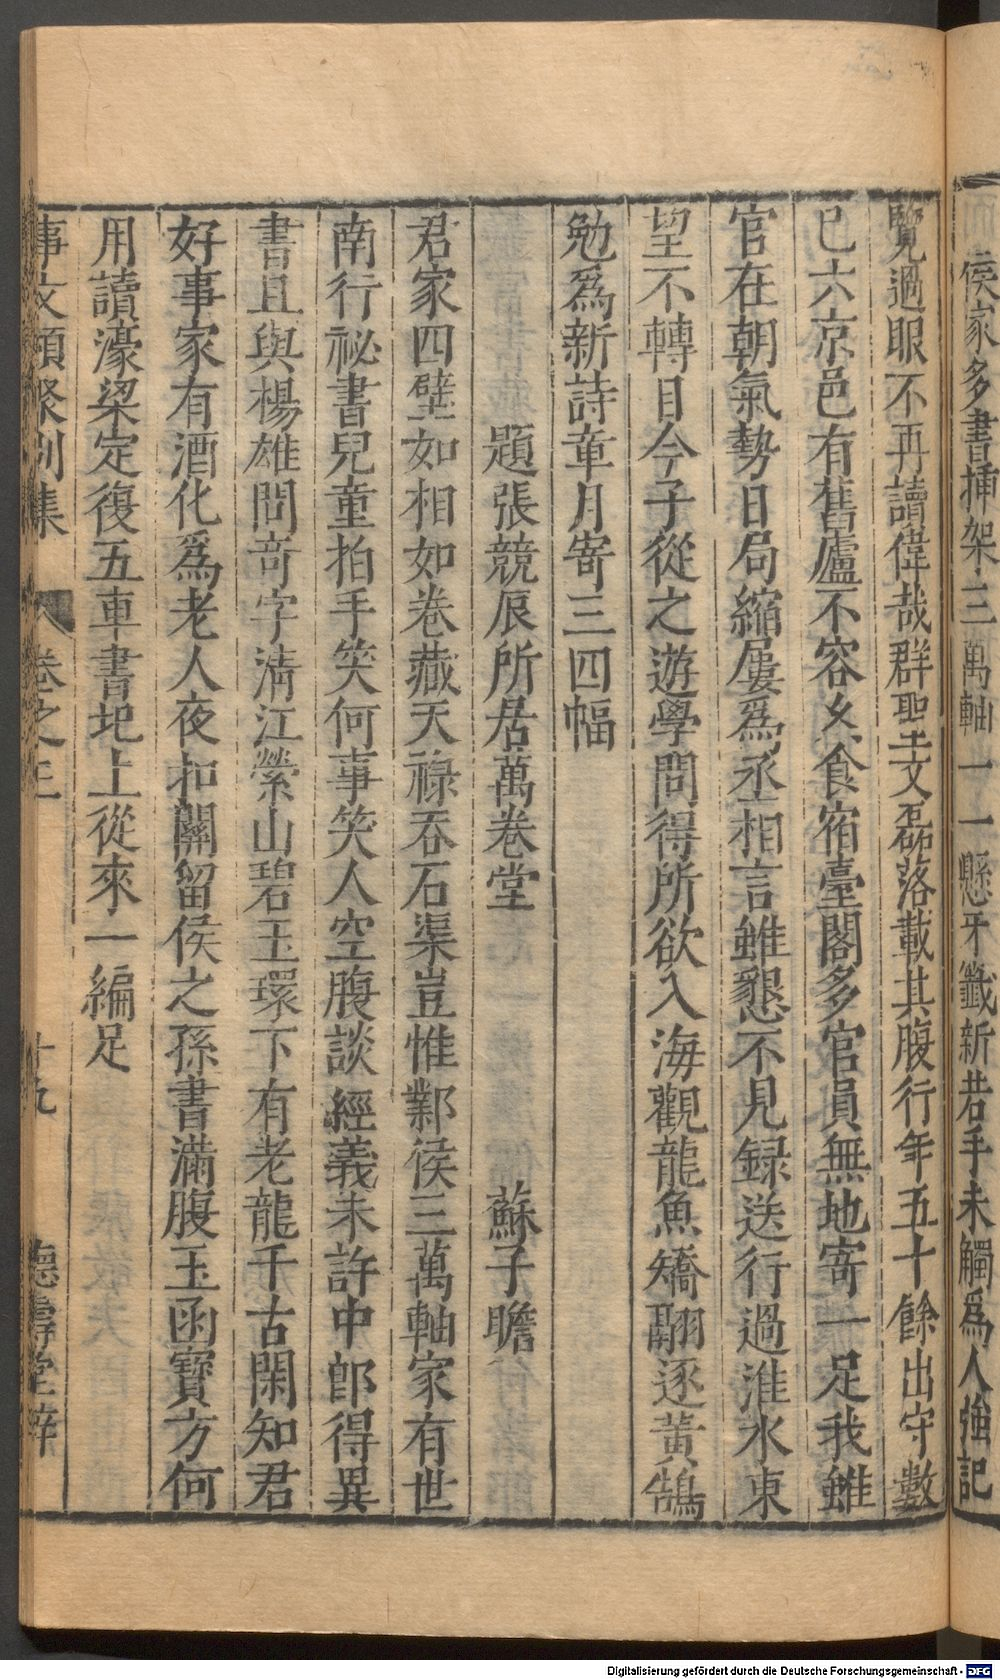 侯家多書揷架三萬軸一一懸牙籤新若手未觸爲人強記
覽過眼不再讀偉哉群聖文磊落載其腹行年五十餘出守數
已六京邑有舊廬不容久食宿臺閣多官員無地寄一足我雖
官在朝氣勢日局縮屢爲丞相言雖懇不見録送行過淮水東
望不轉目今子從之遊學問得所欲入海觀龍魚矯翮逐黃鵠
勉爲新詩章月寄三四幅
題張競辰所居萬卷堂 蘇子瞻
君家四壁如相如卷藏天禄吞石渠豈惟鄴侯三萬軸家有世
南行祕書兒童拍手笑何事笑人空腹談經義未許中郎得異
書且與楊雄問竒字淸江縈山碧玉環下有老龍千古閑知君
好事家有酒化爲老人夜扣關留侯之孫書滿腹玉函寶方何
用讀濠梁定復五車書圯上從來一編足
事文類聚別集 卷之三 十九 德壽堂梓
Digitalisierung gefördert durch die Deutsche Forschungsgemeinschaft - DFG